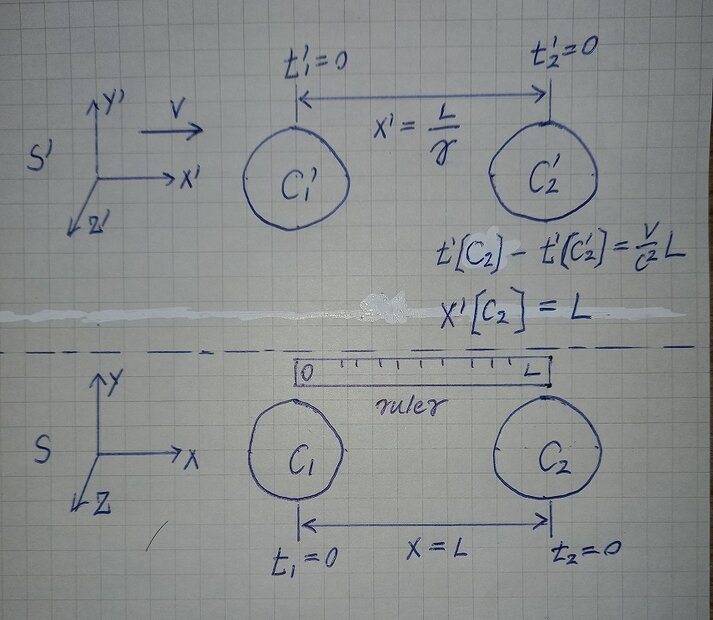 t'₁=0
t'₂=0
Y'
V
S'
X'
Z'
X' = L/γ
C₁'
C₂'
t'[C₂] - t'[C₂'] = V/C² L
X'[C₂] = L
Y
S
X
Z
0
L
ruler
C₁
C₂
t₁=0
X=L
t₂=0